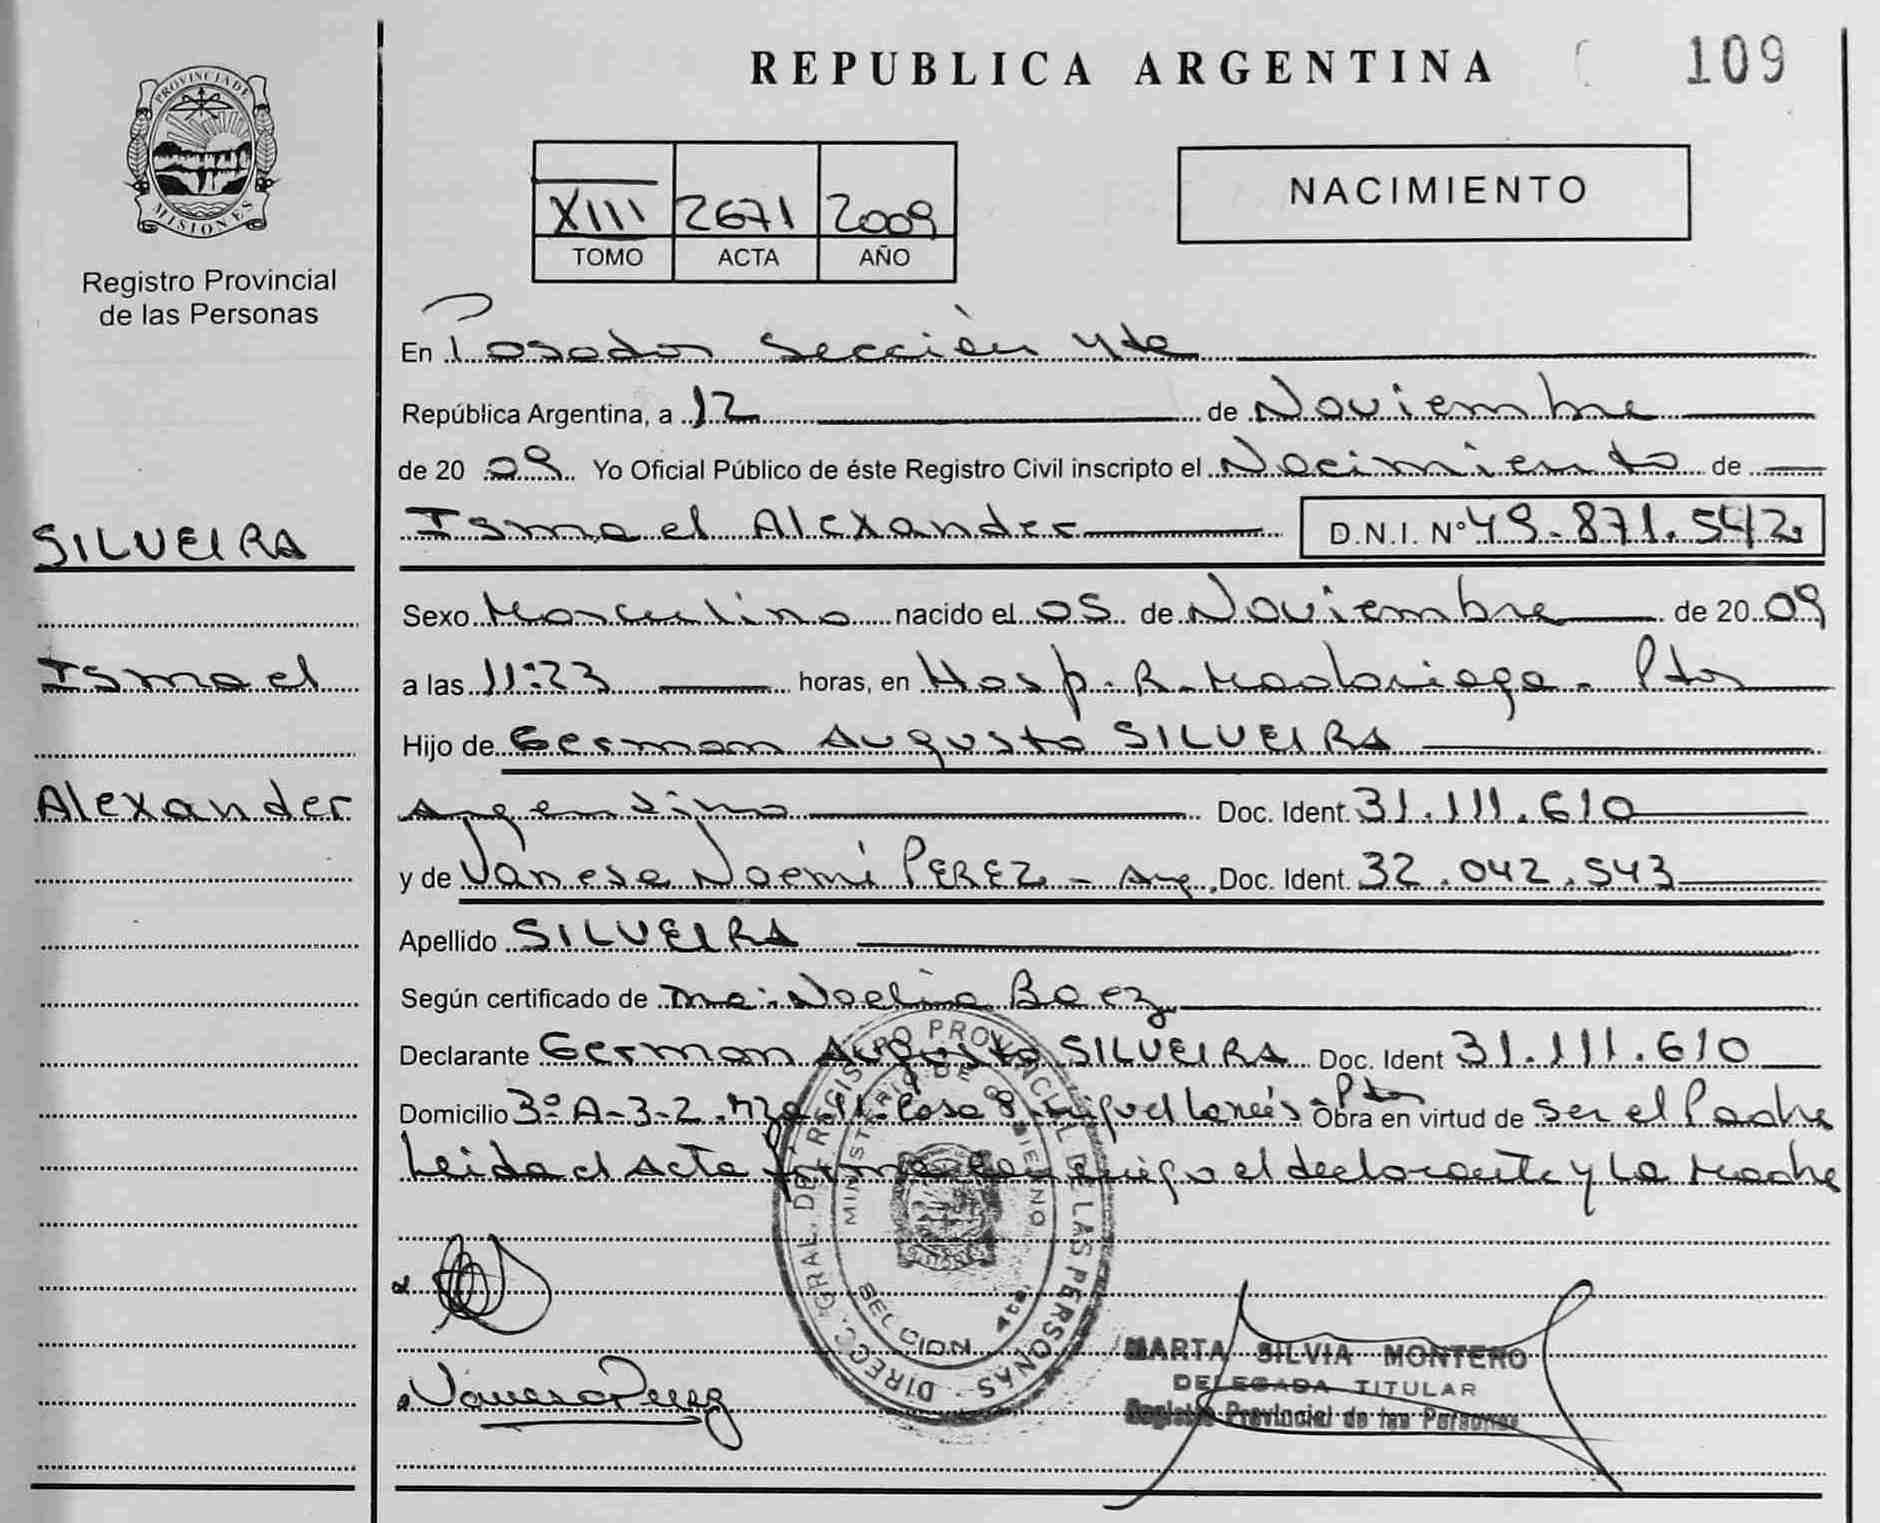 REPUBLICA ARGENTINA
109
PROVINCIA DE
MISIONES
Registro Provincial
de las Personas
XIII 2671 2009
TOMO ACTA AÑO
NACIMIENTO
En Posadas Sección 4ta
República Argentina, a 12 de Noviembre
de 20 09 Yo Oficial Público de éste Registro Civil inscripto el Nacimiento de
SILVEIRA
Ismael Alexander D.N.I. Nº 49.871.542
Sexo Masculino nacido el 05 de Noviembre de 20 09
Ismael
a las 11:23 horas, en Hosp. R. Madariaga - Pdas
Hijo de German Augusto SILVEIRA
Alexander
Argentino Doc. Ident. 31.111.610
y de Vanesa Noemí PEREZ - Arg. Doc. Ident. 32.042.543
Apellido SILVEIRA
Según certificado de Ma. Noelia Baez
Declarante German Augusto SILVEIRA Doc. Ident 31.111.610
Domicilio 3º A-3-2 Casa 8 Miguel Lanús - Pdas Obra en virtud de ser el Padre
Leida el Acta firma conmigo el declarante y la Madre
DIREC. GRAL. DEL REGISTRO PROVINCIAL DE LAS PERSONAS
MINISTERIO DE GOBIERNO
SECCION 4ta.
Vanesa Perez
MARTA SILVIA MONTERO
DELEGADA TITULAR
Registro Provincial de las Personas